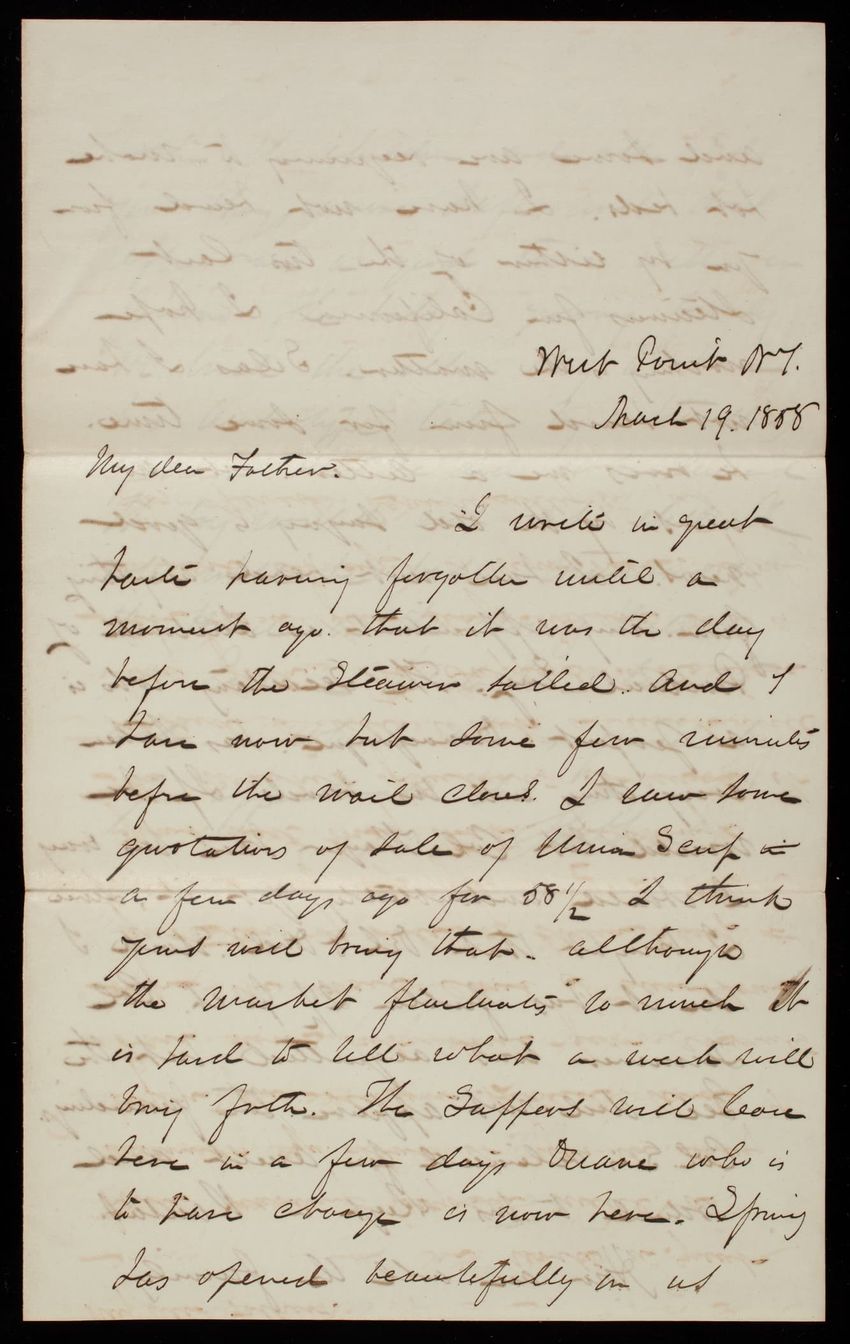 West Point N.Y.
March 19. 1858
My dear Father.
I write in great
haste having forgotten until a
moment ago. that it was the day
before the Steamer sailed. And I
have now but some few minutes
before the mail closes. I saw some
quotations of sale of Union Scrip in
a few days ago for 58 1/2 I think
yours will bring that - allthough
the market fluctuates so much It
is hard to tell what a week will
bring forth. The Sappers will leave
here in a few days Duane who is
to have charge is now here. Spring
has opened beautifully on us